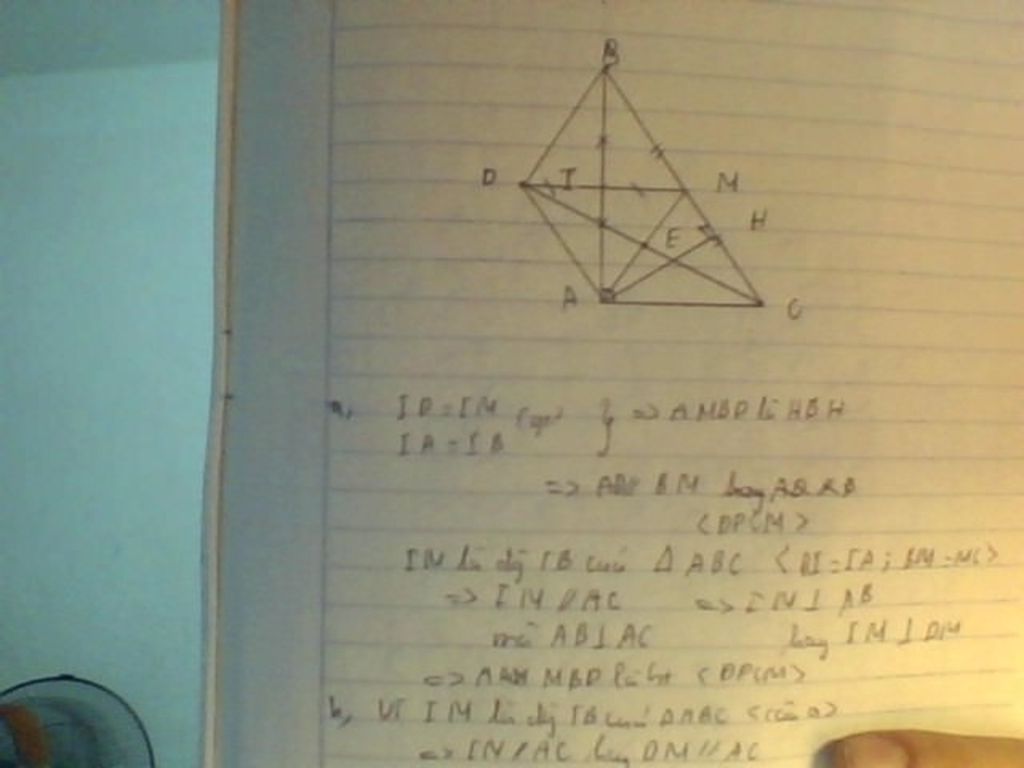 B
D I M
H
E
A
C
a, ID = IM (gt) } => AMBD là HBH
IA = IB
=> AD // BM hay
<ĐPCM>
IM là đg TB của Δ ABC <BI = IA ; BM = MC>
=> IM // AC => IM ⊥ AB
mà AB ⊥ AC hay IM ⊥ DM
=> MBD là <ĐPCM>
b, Vì IM là đg TB của ΔABC <câu a>
=> IM // AC hay DM // AC